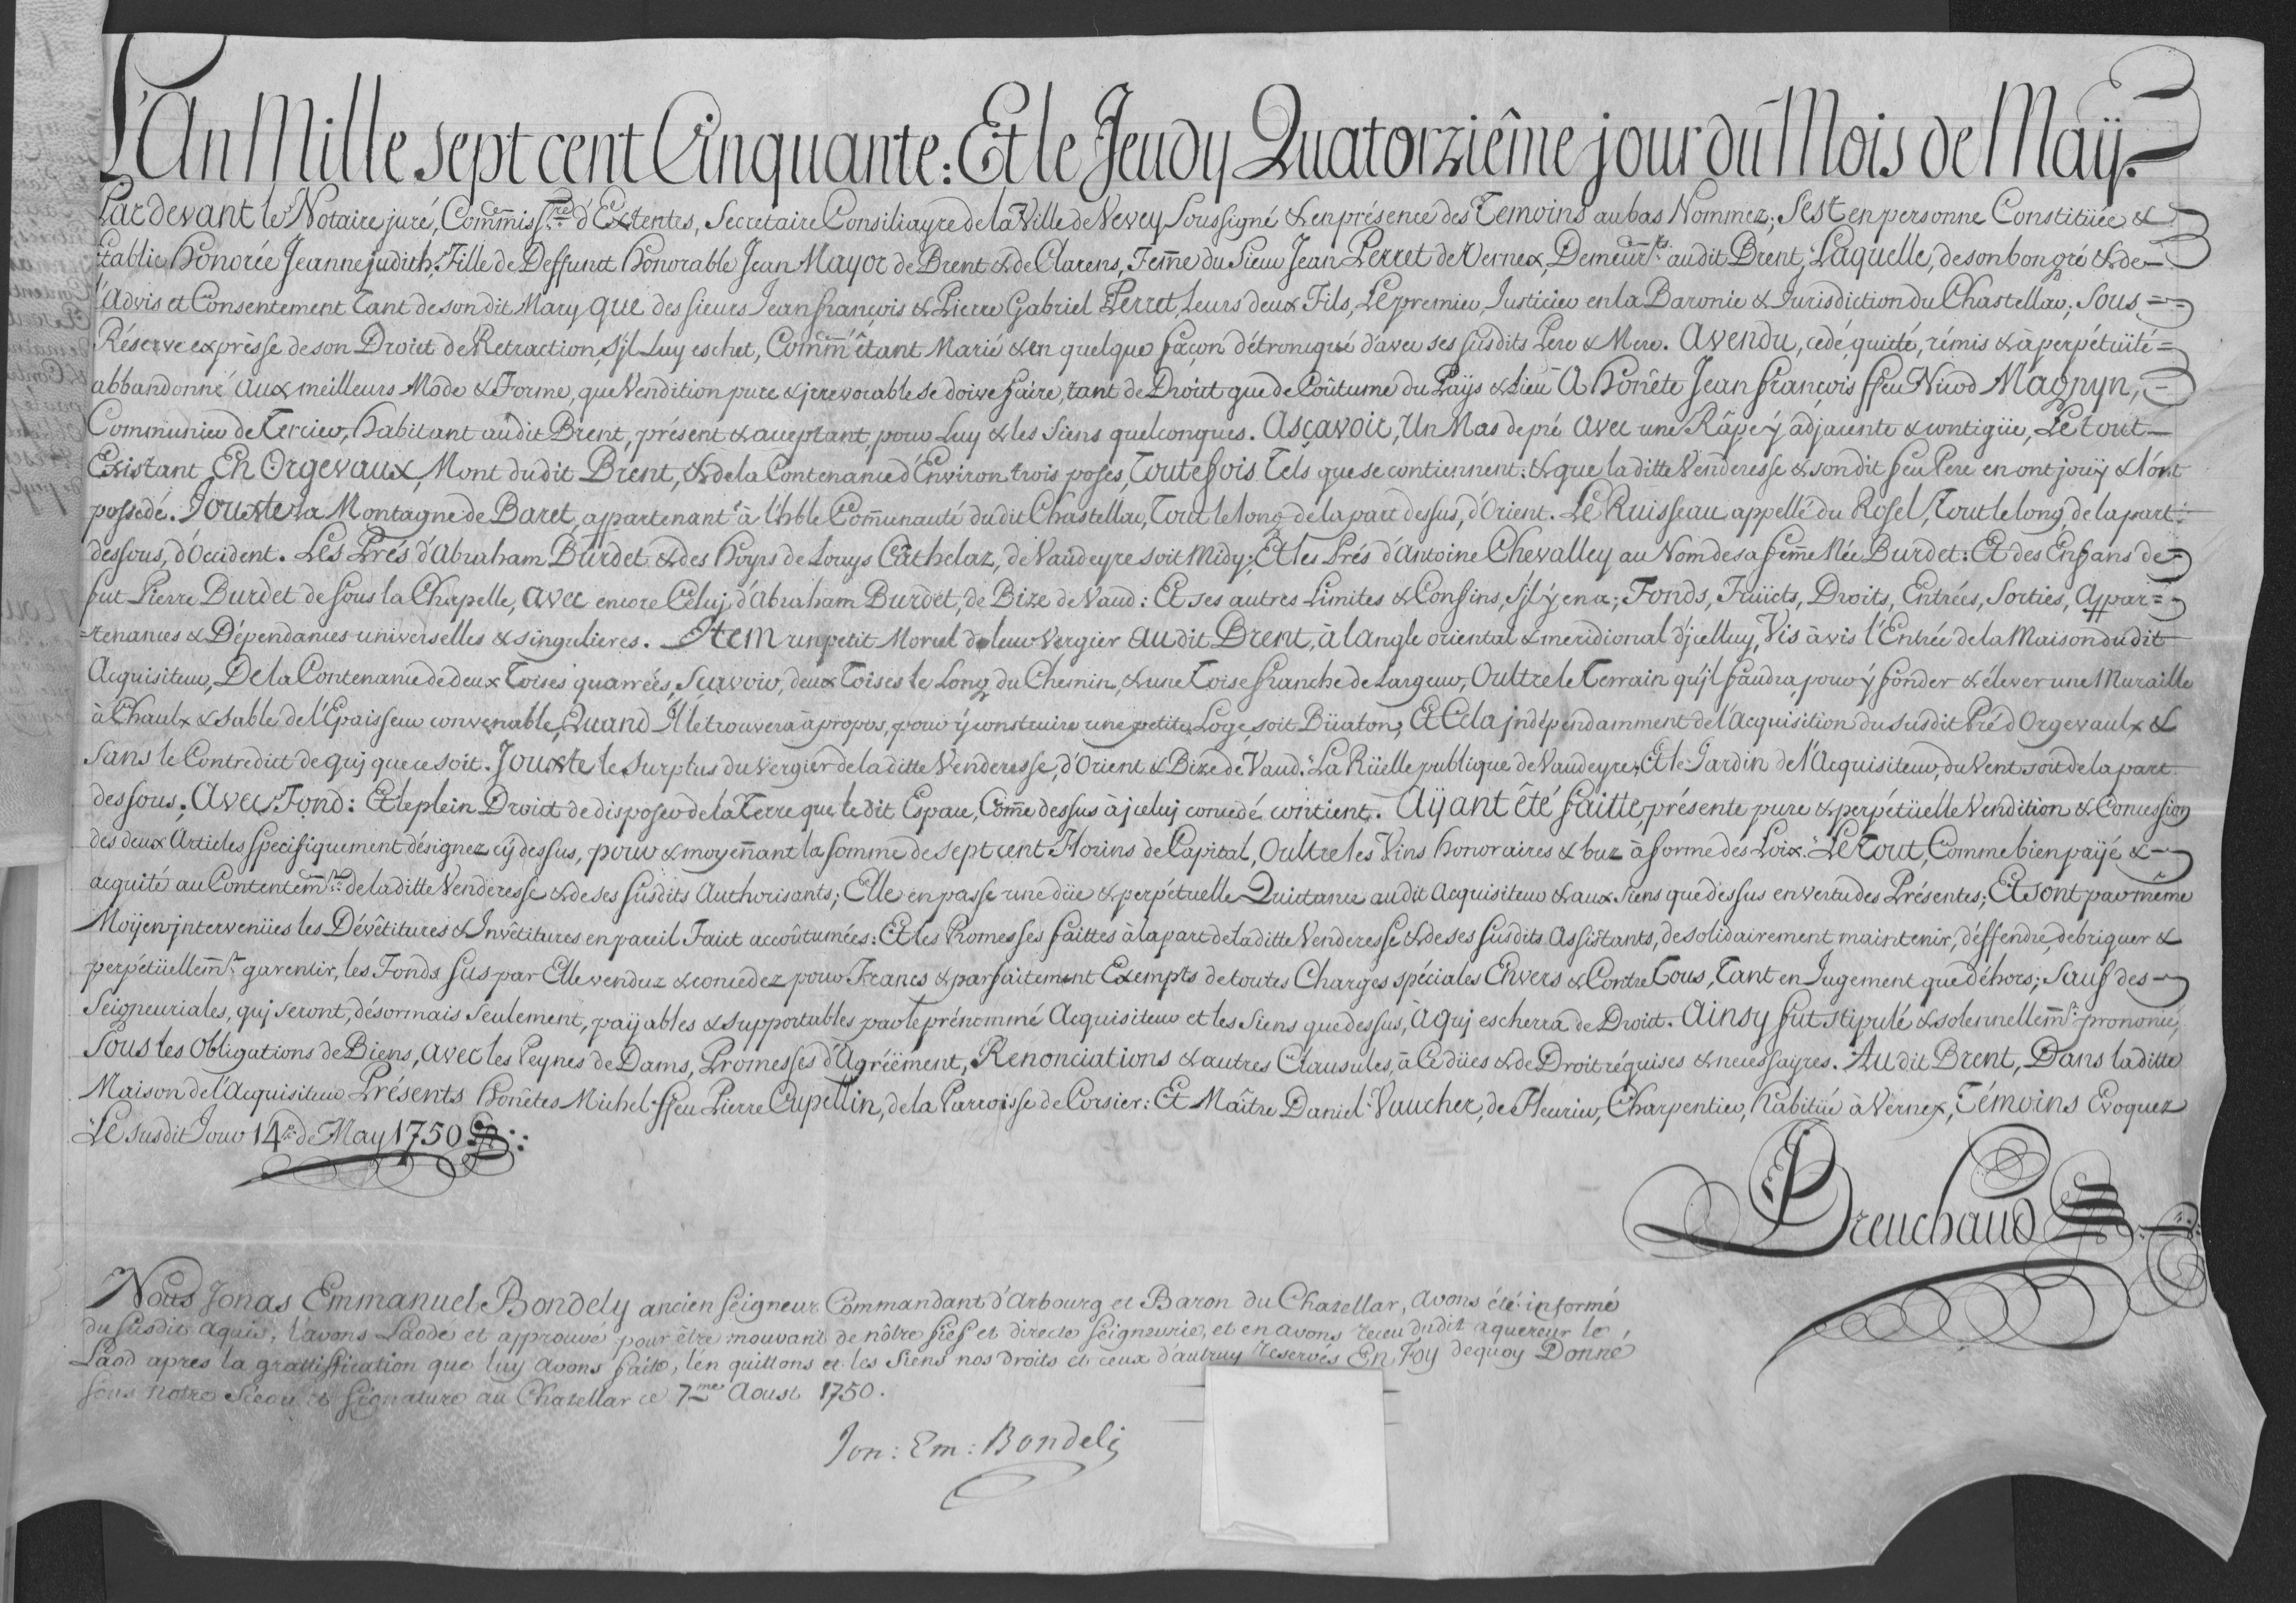 L'An Mille sept cent Cinquante: Et le Jeudy Quatorziême jour du Mois de Maÿ.
Par devant le Notaire juré, Com̄iss.re d'Extentes, Secretaire Consiliayre de la Ville de Vevey Soussigné & en présence des Temoins au bas Nommez; s'est en personne Constitüée &
Etablie honorée Jeanne judith, Fille de Deffunct honorable Jean Mayor de Brent & de Clarens, Fem̄e du Sieur Jean Perret de Vernex, Demeur.ts audit Brent, Laquelle, de son bon gré & de
l'Advis et Consentement Tant de son dit Mary que des sieurs Jean françois & Pierre Gabriel Perret, Leurs deux Fils, Le premier, Justicier en la Baronie & Jurisdiction du Chastellar; Sous
Réserve exprèsse de son Droict de Retraction, s'jl Luy eschet, Com̄m'êtant Marié & en quelque façon détroncqué d'avec ses susdits Pere & Mere. A vendu, cedé, quitté, rémis & à perpétüité
abbandonné aux meilleurs Mode & Forme, que Vendition pure & jrrevocable se doive faire, tant de Droict que de Coûtume du Païs & Lieu A honête Jean françois ffeu Nicod Magnyn,
Communier de Tercier, habitant audit Brent, présent & acceptant, pour Luy & les Siens quelconques. Asçavoir, Un Mas de pré avec une Râpe ÿ adjacente & contigüe, Le tout
Existant En Orgevaux, Mont dudit Brent, & de la Contenance d'Environ trois poses, Toutefois Tels que se contiennent: & que laditte Venderesse & son dit feu Pere en ont jouÿ & l'ont
possedé. Jouxte la Montagne de Baret, appartenant.e à l'hble Com̄unauté dudit Chastellar, Tout le long de la part dessus, d'Orient. Le Ruisseau appellé du Rosel, Tout le long de la part
dessous, d'Occident. Les Prés d'Abraham Burdet & des hoyrs de Louys Cathelaz, de Vaudeyre soit Midy; Et les Prés d'Antoine Chevalley au Nom de sa fem̄e Née Burdet: Et des Enfans de
fut Pierre Burdet de sous la Chapelle, avec encore Celuj d'Abraham Burdet, de Bize de Vaud: Et ses autres Limites & Confins, s'jl ÿ en a; Fonds, Fruicts, Droits, Entrées, Sorties, Appar=
=tenances & Dépendances universelles & singulieres. Item un petit Morcel de leur Vergier audit Brent, à l'angle oriental & meridional d'jcelluy, Vis à vis l'Entrée de la Maison dudit
Acquisiteur, De la Contenance de deux Toises quarrées, Sçavoir, deux Toises le Long du Chemin, & une Toise franche de Largeur, Oultre le Terrain qu'jl faudra, pour ÿ fonder & élever une Muraille
à Chaulx & sable de l'Epaisseur convenable, Quand Il le trouvera à propos, pour ÿ construire une petite Loge, soit Büaton, Et Cela jndépendamment de l'Acquisition du susdit Pré d'Orgevaulx &
sans le Contredict de quj que ce soit. Jouxte le surplus du vergier de laditte Venderesse, d'Orient & Bize de Vaud. La Rüelle publique de Vaudeyre, Et le Jardin de l'Acquisiteur, du Vent soit de la part
dessous. Avec Fond: Et le plein Droict de disposer de la Terre que le dit Espace, Com̄e dessus à jceluj concedé contient. Aÿant été faitte présente pure & perpétüelle Vendition & Concession
des deux Articles spécifiquement désignez cÿ dessus, pour & moyen̄ant la somme de sept cent Florins de Capital, Oultre les Vins honoraires & buz à forme des Loix. Le tout, Comme bien paÿé &
acquité au Contentem.nt de laditte Venderesse & de ses susdits Authorisants; Elle en passe une düe & perpétuelle Quictance audit Acquisiteur & aux Siens que dessus en vertu des Présentes; Et sont par même
Moÿen jntervenües les Dévêtitures & Invêtitures en pareil Faict accoûtumées: Et les Promesses faittes à la part de laditte Venderesse & de ses susdits Assistants, de solidairement maintenir, deffendre, débriguer &
perpétüellem.t garentir, les Fonds sus par Elle venduz & concedez pour Francs & parfaitement Exempts de toutes Charges spéciales Envers & Contre Tous, Tant en Jugement que déhors; Sauf des
Seigneuriales, quj seront, désormais seulement, paÿables & supportables par le prénommé Acquisiteur et les Siens que dessus, à quj escherra de Droict. Ainsy fut stipulé & solennellem.t prononcé,
Sous les Obligations de Biens, avec les Peynes de Dams, Promesses d'Agréement, Renonciations & autres Clausules, à Ce dües & de Droit réquises & necessayres. Audit Brent, Dans laditte
Maison de l'Acquisiteur Présents honêtes Michel ffeu Pierre Cupellin, de la Parroisse de Corsier: Et Maître Daniel Vaucher, de Fleurier, Charpentier, habitüé à Vernex, Témoins Evoquez
Le susdit Jour 14.e de May 1750
Preuchaud
Nous Jonas Emmanuel Bondely ancien seigneur Commandant d'Arbourg et Baron du Chatellar, avons été informé
du susdit aquis, l'avons Laodé et approuvé pour être mouvant de nôtre fief et directe seigneurie, et en avons receu dudit aquereur le
Laod apres la grattiffication que luy avons faite, l'en quittons et les siens nos droits et ceux d'autruy reservés En Foy dequoy Donné
sous notre Sceau et signature au Chatellar ce 7.me Aoust 1750.
Jon: Em: Bondeli